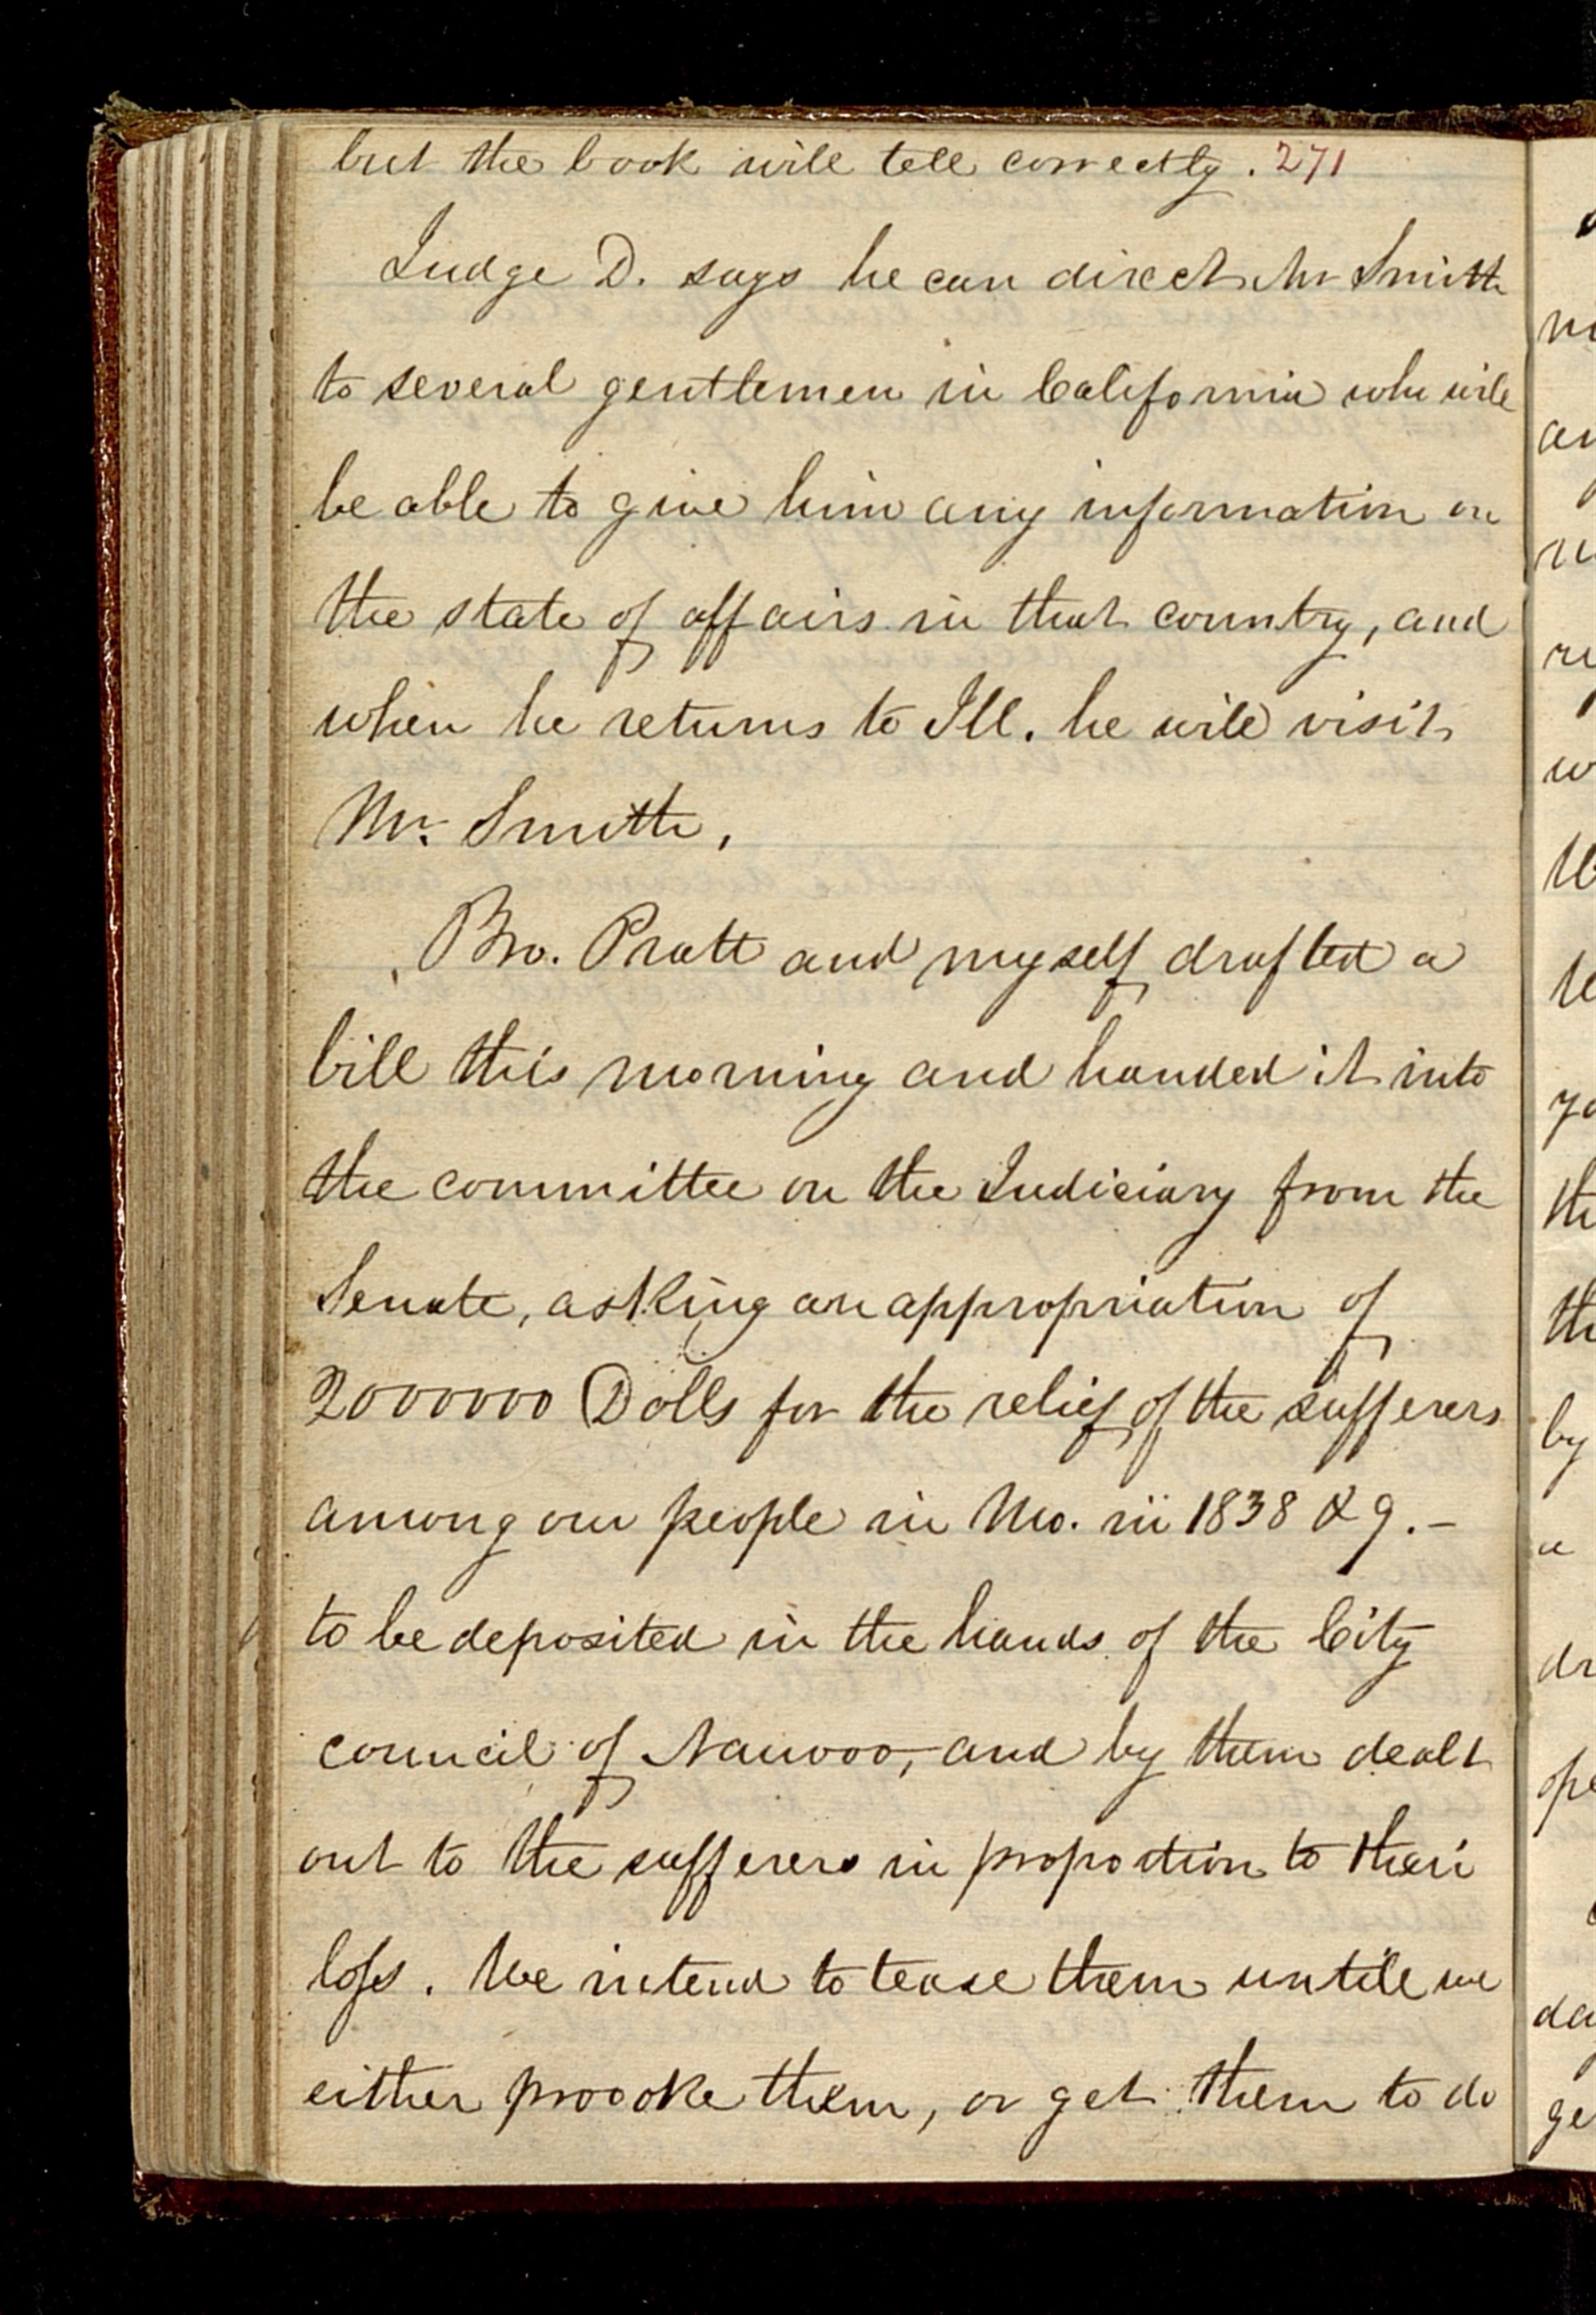 but the book will tell correctly. 271
Judge D. says he can direct Mr Smith
to several gentlemen in California who will
be able to give him any information on
the state of affairs in that country, and
when he returns to Ill. he will visit
Mr. Smith.
Bro. Pratt and myself drafted a
bill this morning and handed it into
the committee on the Judiciary from the
Senate, asking an appropriation of
2000000 Dolls for the relief of the sufferers
among our people in Mo. in 1838 & 9.-
to be deposited in the hands of the City
council of Nauvoo, and by them dealt
out to the sufferers in proportion to their
loss. We intend to tease them untill we
either provoke them, or get them to do